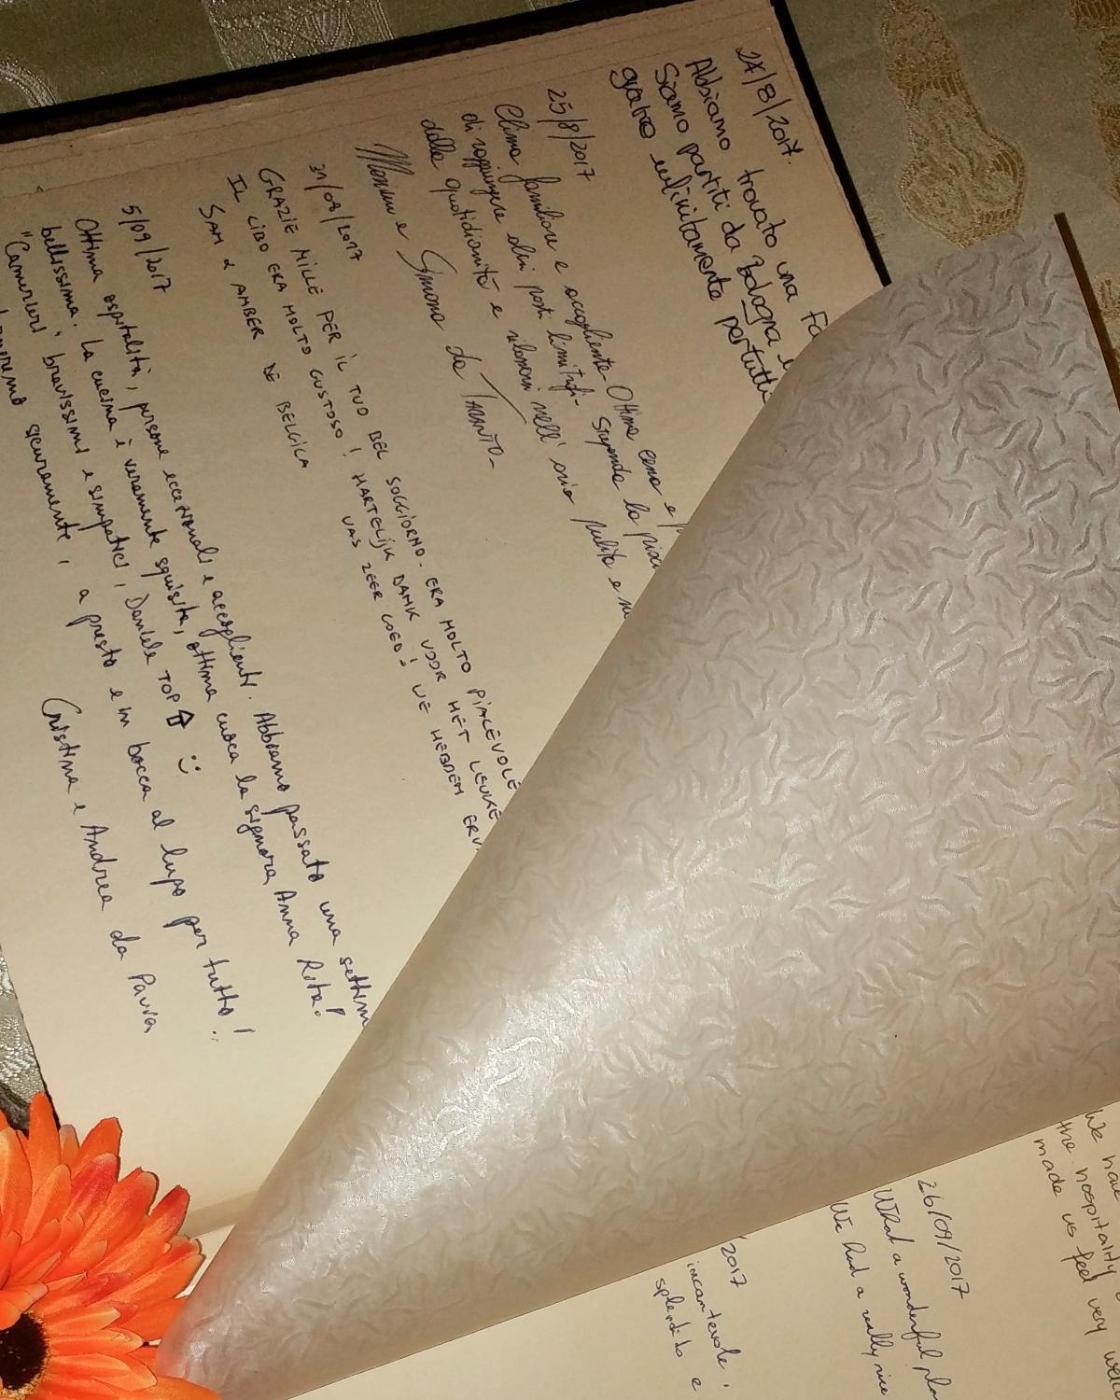 24/8/2017.
Abbiamo trovato una
Siamo partiti da Bologna
infinitamente per tutto
25/8/2017
Clima familiare e accogliente. Ottima cena e
di raggiungere altri posti limitrofi. Stupenda la
dalla quotidianità e rilassarsi nell'
pulito e
Simona da Trento.
31/08/2017
GRAZIE MILLE PER IL TUO BEL SOGGIORNO. ERA MOLTO PIACEVOLE
IL CIBO ERA MOLTO GUSTOSO! HARTELIJK DANK VOOR HET LEUKE
SAM & AMBER DE BELGICA
WAS ZEER GOED! WE HEBBEN ERV
5/09/2017
Ottima ospitalità, persone eccezionali e accoglienti. Abbiamo passato una settim
bellissima. La cucina è veramente squisita, ottima cuoca la signora Anna Rita!
"Camerieri" bravissimi e simpatici, Daniele TOP
sicuramente, a presto e in bocca al lupo per tutto!
Cristina e Andrea da Pavia
We have
the hospitality
made us feel very wel
26/09/2017
What a wonderful pla
We had a really nice
/2017
incantevole,
splendido e